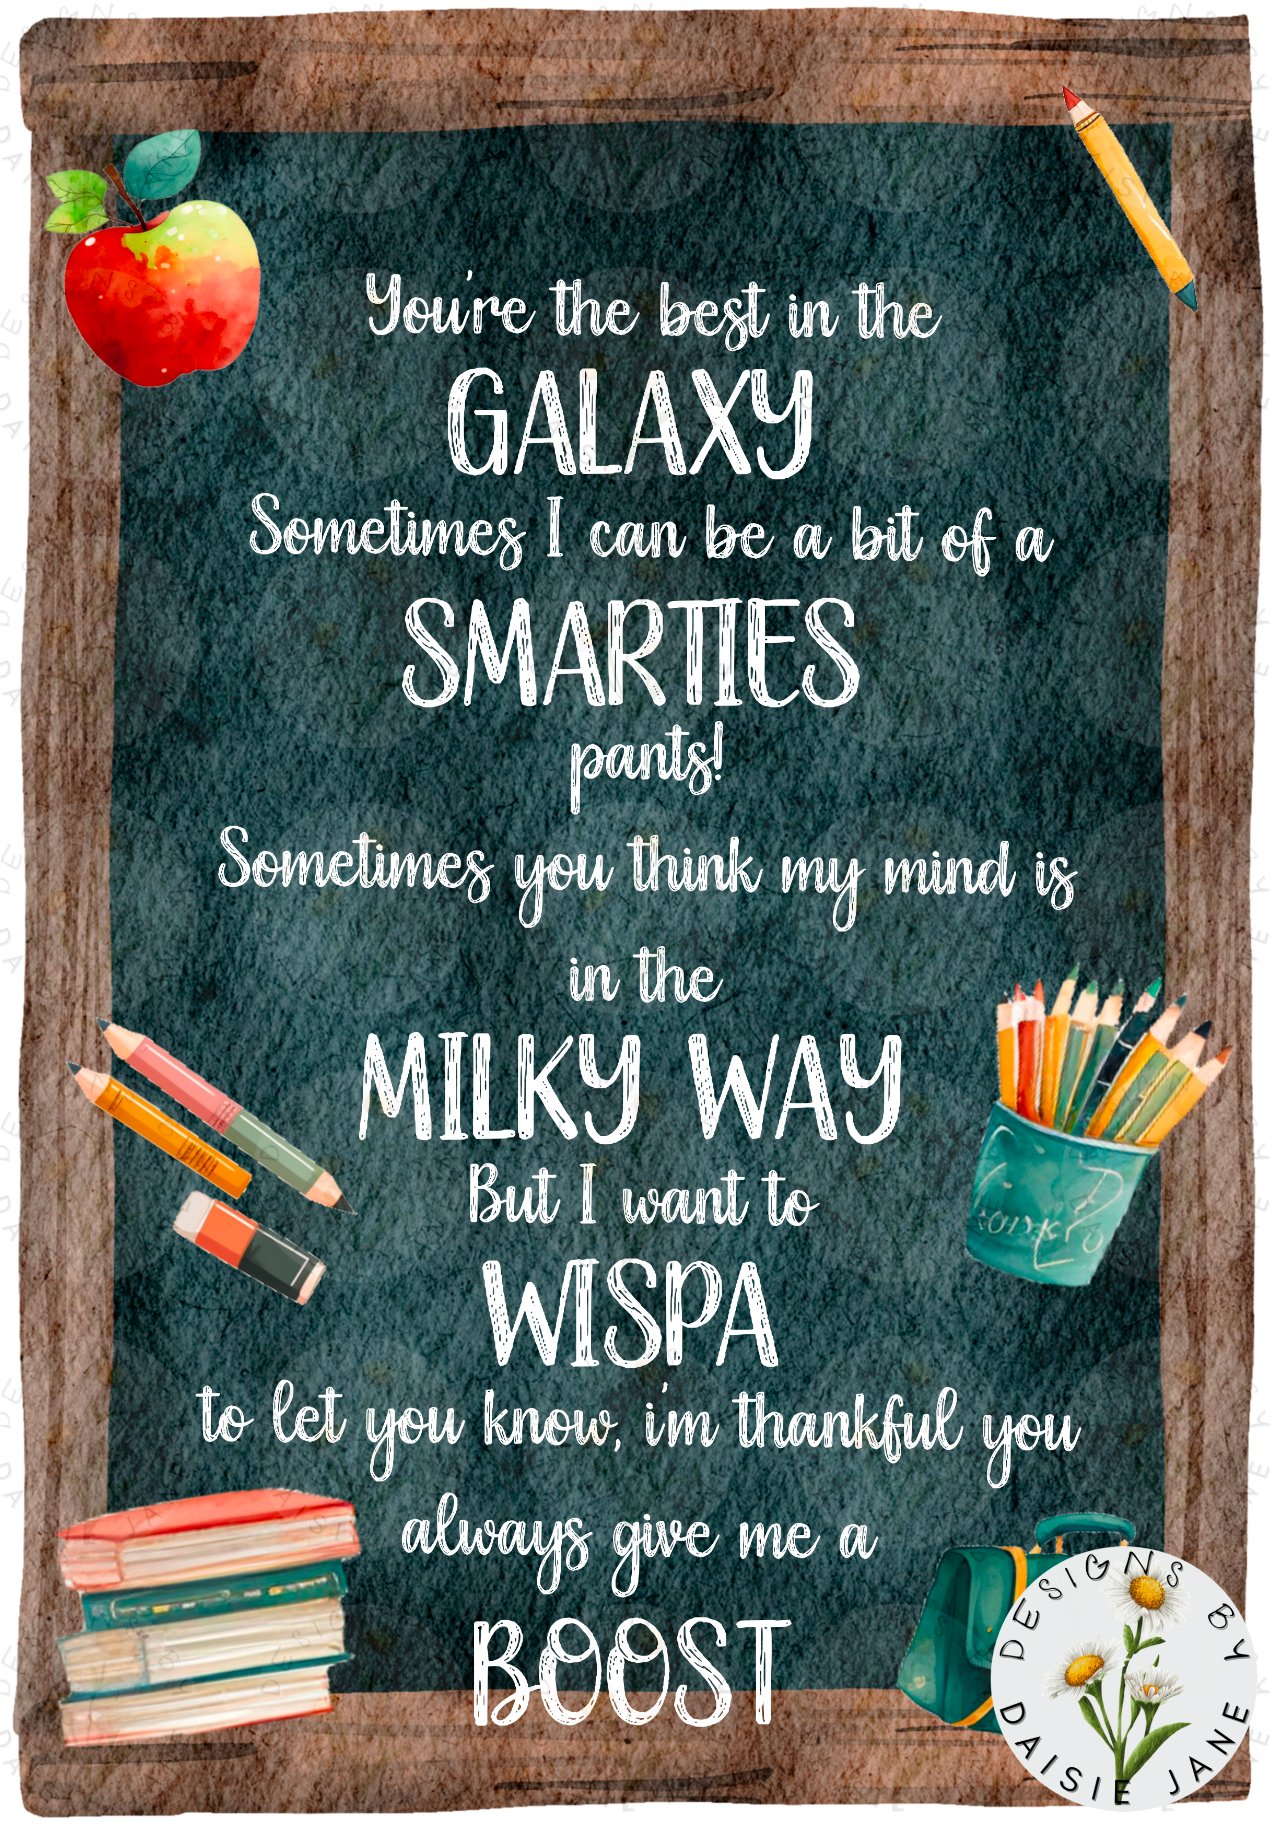 You're the best in the
GALAXY
Sometimes I can be a bit of a
SMARTIES
pants!
Sometimes you think my mind is
in the
MILKY WAY
But I want to
WISPA
to let you know, i'm thankful you
always give me a
BOOST
DESIGNS BY
DAISIE JANE